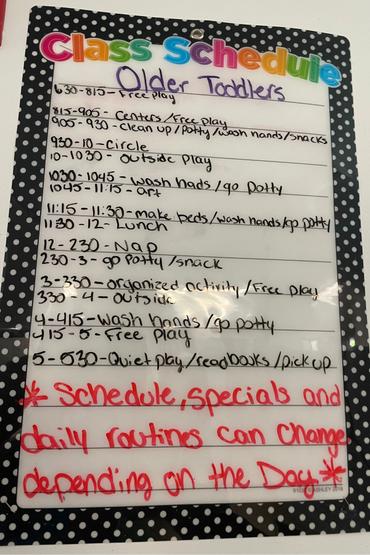 Class Schedule
Older Toddlers
630-815- Free play
815-905- Centers/Free play
905-930-clean up/potty/wash hands/snacks
930-10-Circle
10-1030- outside play
1030-1045-wash hads/go potty
1045-11:15- art
11:15-11:30-make beds/wash hands/go potty
1130-12- Lunch
12-230-Nap
230-3-go potty/snack
3-330-organized activity/Free play
330-4-outside
4-415-wash hands/go potty
415-5-Free play
5-530-Quiet play/readbooks/pick up
* Schedule, specials and
daily routines can change
depending on the Day *